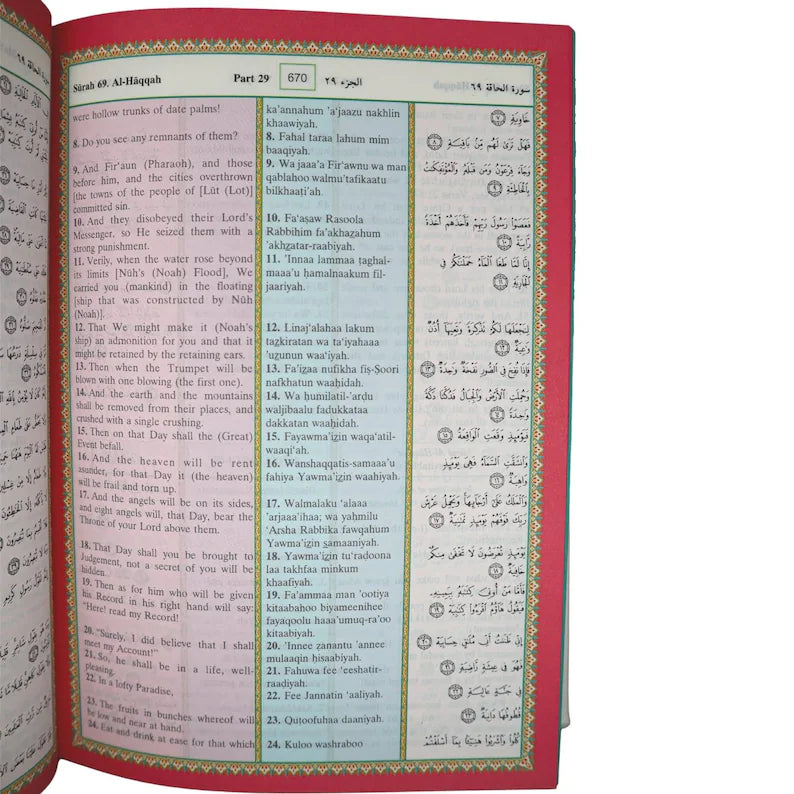 Sûrah 69. Al-Hâqqah
Part 29
670
الجزء ٢٩
سورة الحاقة ٦٩
were hollow trunks of date palms!
8. Do you see any remnants of them?
9. And Fir'aun (Pharaoh), and those
before him, and the cities overthrown
[the towns of the people of [Lût (Lot)]
committed sin.
10. And they disobeyed their Lord's
Messenger, so He seized them with a
strong punishment.
11. Verily, when the water rose beyond
its limits [Nûh's (Noah) Flood], We
carried you (mankind) in the floating
[ship that was constructed by Nûh
(Noah)].
12. That We might make it (Noah's
ship) an admonition for you and that it
might be retained by the retaining ears.
13. Then when the Trumpet will be
blown with one blowing (the first one).
14. And the earth and the mountains
shall be removed from their places, and
crushed with a single crushing.
15. Then on that Day shall the (Great)
Event befall.
16. And the heaven will be rent
asunder, for that Day it (the heaven)
will be frail and torn up.
17. And the angels will be on its sides,
and eight angels will, that Day, bear the
Throne of your Lord above them.
18. That Day shall you be brought to
Judgement, not a secret of you will be
hidden.
19. Then as for him who will be given
his Record in his right hand will say:
"Here! read my Record!
20. "Surely, I did believe that I shall
meet my Account!"
21. So, he shall be in a life, well-
pleasing.
22. In a lofty Paradise,
23. The fruits in bunches whereof will
be low and near at hand.
24. Eat and drink at ease for that which
ka'annahum 'a'jaazu nakhlin
khaawiyah.
8. Fahal taraa lahum mim
baaqiyah.
9. Wa jaaa'a Fir'awnu wa man
qablahoo walmu'tafikaatu
bilkhaaṭi'ah.
10. Fa'aṣaw Rasoola
Rabbihim fa'akhazahum
'akhzatar-raabiyah.
11. 'Innaa lammaa ṭaghal-
maaa'u ḥamalnaakum fil-
jaariyah.
12. Linaj'alahaa lakum
tazkiratan wa ta'iyahaaa
'uzunun waa'iyah.
13. Fa'izaa nufikha fiṣ-Ṣoori
nafkhatun waaḥidah.
14. Wa ḥumilatil-'arḍu
waljibaalu fadukkataa
dakkatan waaḥidah.
15. Fayawma'izin waqa'atil-
waaqi'ah.
16. Wanshaqqatis-samaaa'u
fahiya Yawma'izin waahiyah.
17. Walmalaku 'alaaa
'arjaaa'ihaa; wa yaḥmilu
'Arsha Rabbika fawqahum
Yawma'izin samaaniyah.
18. Yawma'izin tu'raḍoona
laa takhfaa minkum
khaafiyah.
19. Fa'ammaa man 'ootiya
kitaabahoo biyameenihee
fayaqoolu haaa'umuq-ra'oo
kitaabiyah.
20. 'Innee ẓanantu 'annee
mulaaqin ḥisaabiyah.
21. Fahuwa fee 'eeshatir-
raaḍiyah.
22. Fee Jannatin 'aaliyah.
23. Quṭoofuhaa daaniyah.
24. Kuloo washraboo
خَاوِيَةٍ ٧
فَهَلْ تَرَىٰ لَهُم مِّنۢ بَاقِيَةٍ ٨
وَجَآءَ فِرْعَوْنُ وَمَن قَبْلَهُۥ وَٱلْمُؤْتَفِكَٰتُ
بِٱلْخَاطِئَةِ ٩
فَعَصَوْا۟ رَسُولَ رَبِّهِمْ فَأَخَذَهُمْ أَخْذَةً
رَّابِيَةً ١٠
إِنَّا لَمَّا طَغَا ٱلْمَآءُ حَمَلْنَٰكُمْ فِى
ٱلْجَارِيَةِ ١١
لِنَجْعَلَهَا لَكُمْ تَذْكِرَةً وَتَعِيَهَآ أُذُنٌ
وَٰعِيَةٌ ١٢
فَإِذَا نُفِخَ فِى ٱلصُّورِ نَفْخَةٌ وَٰحِدَةٌ ١٣
وَحُمِلَتِ ٱلْأَرْضُ وَٱلْجِبَالُ فَدُكَّتَا دَكَّةً
وَٰحِدَةً ١٤
فَيَوْمَئِذٍ وَقَعَتِ ٱلْوَاقِعَةُ ١٥
وَٱنشَقَّتِ ٱلسَّمَآءُ فَهِىَ يَوْمَئِذٍ
وَاهِيَةٌ ١٦
وَٱلْمَلَكُ عَلَىٰٓ أَرْجَآئِهَا وَيَحْمِلُ عَرْشَ
رَبِّكَ فَوْقَهُمْ يَوْمَئِذٍ ثَمَٰنِيَةٌ ١٧
يَوْمَئِذٍ تُعْرَضُونَ لَا تَخْفَىٰ مِنكُمْ
خَافِيَةٌ ١٨
فَأَمَّا مَنْ أُوتِىَ كِتَٰبَهُۥ بِيَمِينِهِۦ
فَيَقُولُ هَآؤُمُ ٱقْرَءُوا۟ كِتَٰبِيَهْ ١٩
إِنِّى ظَنَنتُ أَنِّى مُلَٰقٍ حِسَابِيَهْ ٢٠
فَهُوَ فِى عِيشَةٍ رَّاضِيَةٍ ٢١
فِى جَنَّةٍ عَالِيَةٍ ٢٢
قُطُوفُهَا دَانِيَةٌ ٢٣
كُلُوا۟ وَٱشْرَبُوا۟ هَنِيٓـًٔۢا بِمَآ أَسْلَفْتُمْ